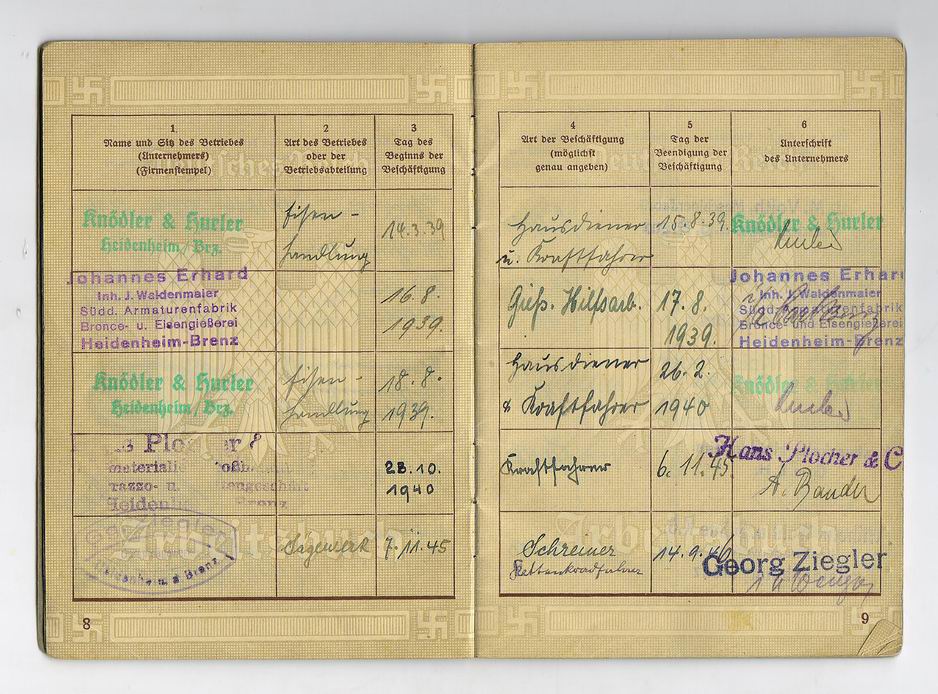 1
Name und Sitz des Betriebes
(Unternehmers)
(Firmenstempel)
2
Art des Betriebes
oder der
Betriebsabteilung
3
Tag des
Beginns der
Beschäftigung
Knödler & Hurler
Heidenheim/Brz.
Eisen-
handlung
14.3.39
Johannes Erhard
Inh. J. Waldenmaier
Südd. Armaturenfabrik
Bronce- u. Eisengießerei
Heidenheim-Brenz
16.8.
1939.
Knödler & Hurler
Heidenheim/Brz.
Eisen-
handlung
18.8.
1939.
Plocher &
28.10.
1940
Ziegler
Heidenheim a Brenz
Sägewerk
7.11.45
8
4
Art der Beschäftigung
(möglichst
genau angeben)
5
Tag der
Beendigung der
Beschäftigung
6
Unterschrift
des Unternehmers
Hausdiener
u. Kraftfahrer
15.8.39.
Knödler & Hurler
Gieß. Hilfsarb.
17.8.
1939.
Johannes Erhard
Inh. J. Waldenmaier
Südd. Armaturenfabrik
Bronce- und Eisengießerei
Heidenheim-Brenz
Hausdiener
& Kraftfahrer
26.2.
1940
Knödler & Hurler
Kraftfahrer
6.11.45.
Hans Plocher & C
Schreiner
14.9.46
Georg Ziegler
9
Arbeitsbuch